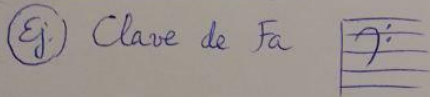 Ej.) Clave de Fa